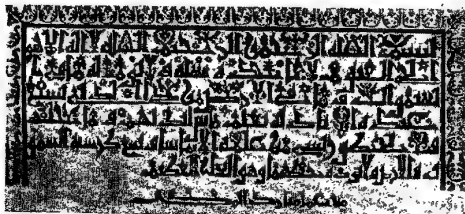 بسم الله الرحمن الرحيم الله لا اله الا هو
الحي القيوم لا تاخذه سنة ولا نوم له ما في ا
لسموات وما في الارض من ذا الذي يشفع
عنده الا باذنه يعلم ما بين ايديهم وما خلفهم
ولا يحيطون بشي من علمه الا بما شا وسع كرسيه السمو
ات والارض ولا يوده حفظهما وهو العلي العظيم